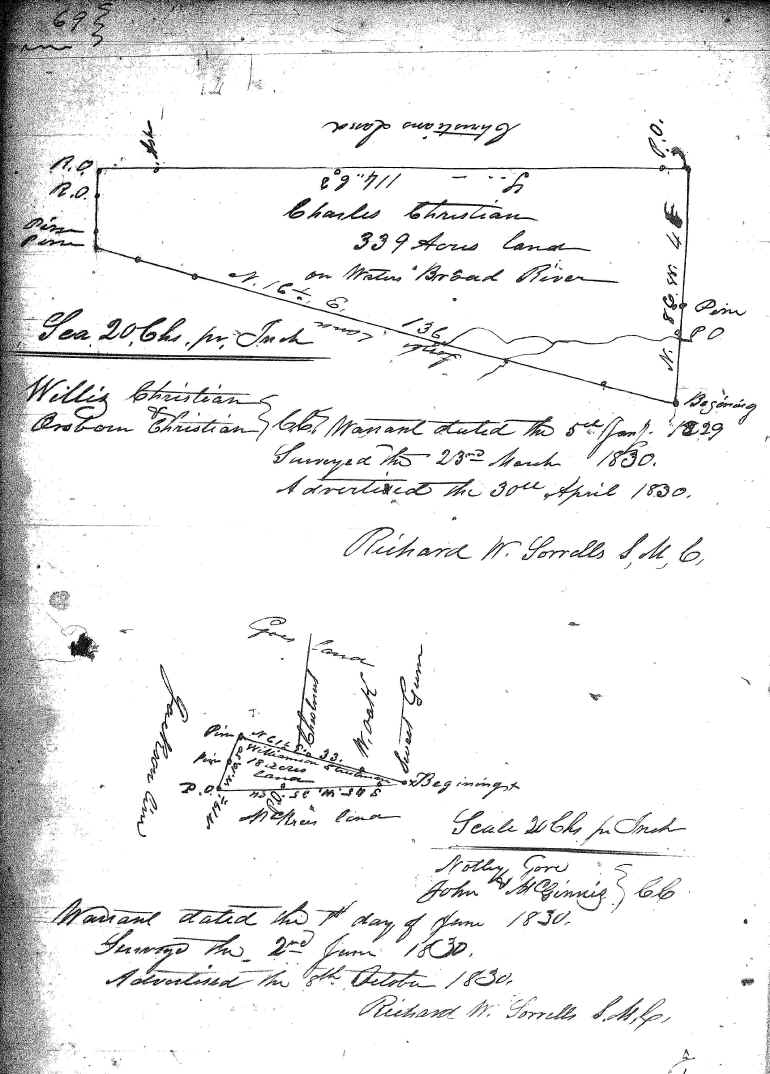 69
Christians Land
R.O.
R.O.
Pine
Pine
P.O.
114.. 62
Charles Christian
339 Acres land
on Waters Broad River
N. 16 1/2 E. 136
Pine
P.O
Begining
Sca. 20, Chs. pr, Inch
Willis Christian
& Orsborn Christian } CC, Warrant dated the 5th Jany. 1829
Surveyed the 23rd March 1830.
Advertized the 30th April 1830.
Richard W. Sorrells S, M, C,
Gores land
Chesnut
W. oak
Sweet Gum
Jackson line
Pine
N 61 1/2 E. 33.
Williamson
18 acres
land
Pine
P.O
Begining
McKees land
Scale 20 Chs pr Inch
Notley Gore
John McGinnis } CC
Warrant dated the 1st day of June 1830.
Surveyd the 2nd June 1830.
Advertised the 8th October 1830.
Richard W. Sorrells S.M,C,